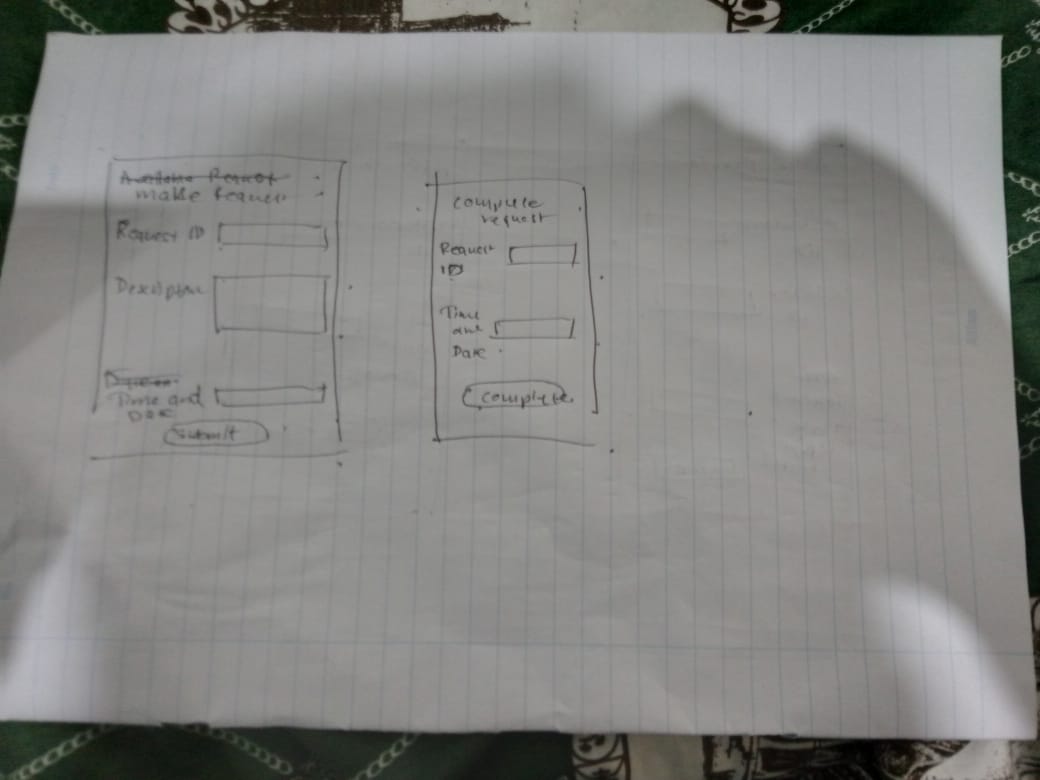 make Request
Request ID
Description
Time and
Date
Submit
Complete
request
Request
ID
Time
and
Date
Complete